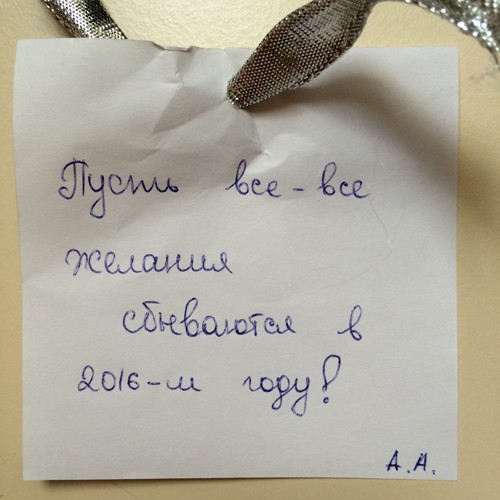 Пусть все-все
желания
сбываются в
2016-м году!
А.А.